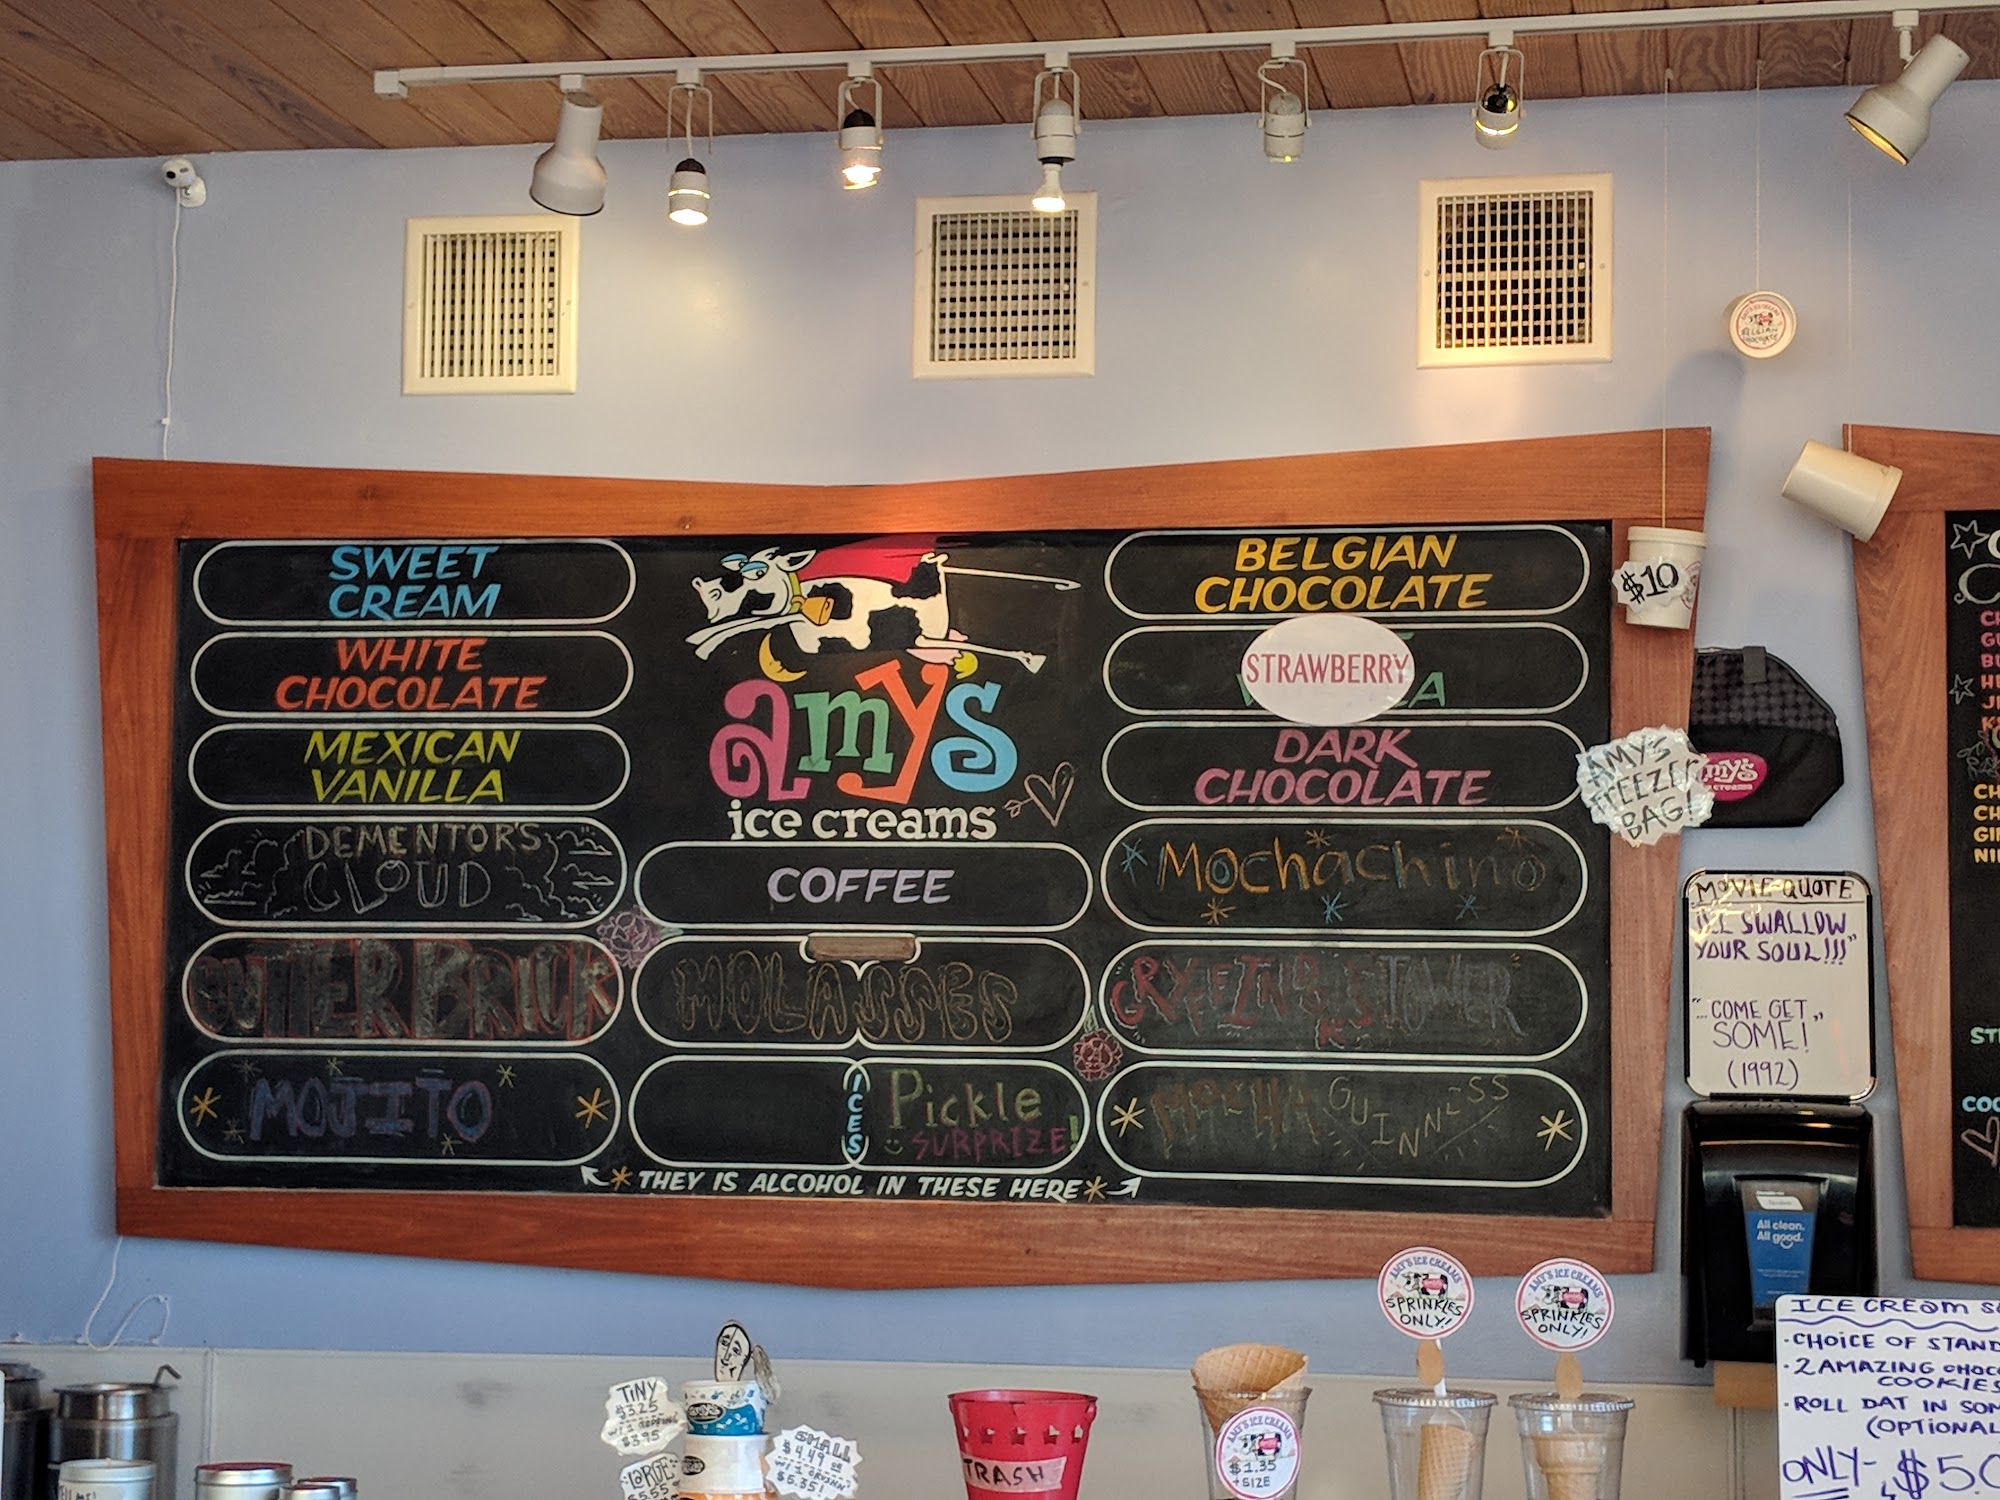 SWEET
CREAM
WHITE
CHOCOLATE
MEXICAN
VANILLA
DEMENTOR'S
CLOUD
OUTTER BRICK
MOJITO
amy's
ice creams
COFFEE
MOLASSES
ICES
Pickle
SURPRIZE!
THEY IS ALCOHOL IN THESE HERE
BELGIAN
CHOCOLATE
STRAWBERRY
DARK
CHOCOLATE
Mochachino
GRYFFINDOR'S TOWER
MOCHA GUINNESS
BELGIAN
CHOCOLATE
$10
AMY'S
FREEZER
BAG!
amy's
MOVIE QUOTE
"I'LL SWALLOW
YOUR SOUL!!!"
"...COME GET
SOME!"
(1992)
All clean.
All good.
ICE CREAM
·CHOICE OF
·2 AMAZING
COOKIES
·ROLL DAT IN
(OPTIONAL
ONLY- $5.0
TINY
$3.25
$3.95
LARGE
$5.55
SMALL
$4.49
$5.35!
TRASH
AMY'S ICE CREAMS
$1.35
+SIZE
AMY'S ICE CREAMS
SPRINKLES
ONLY!
AMY'S ICE CREAMS
SPRINKLES
ONLY!